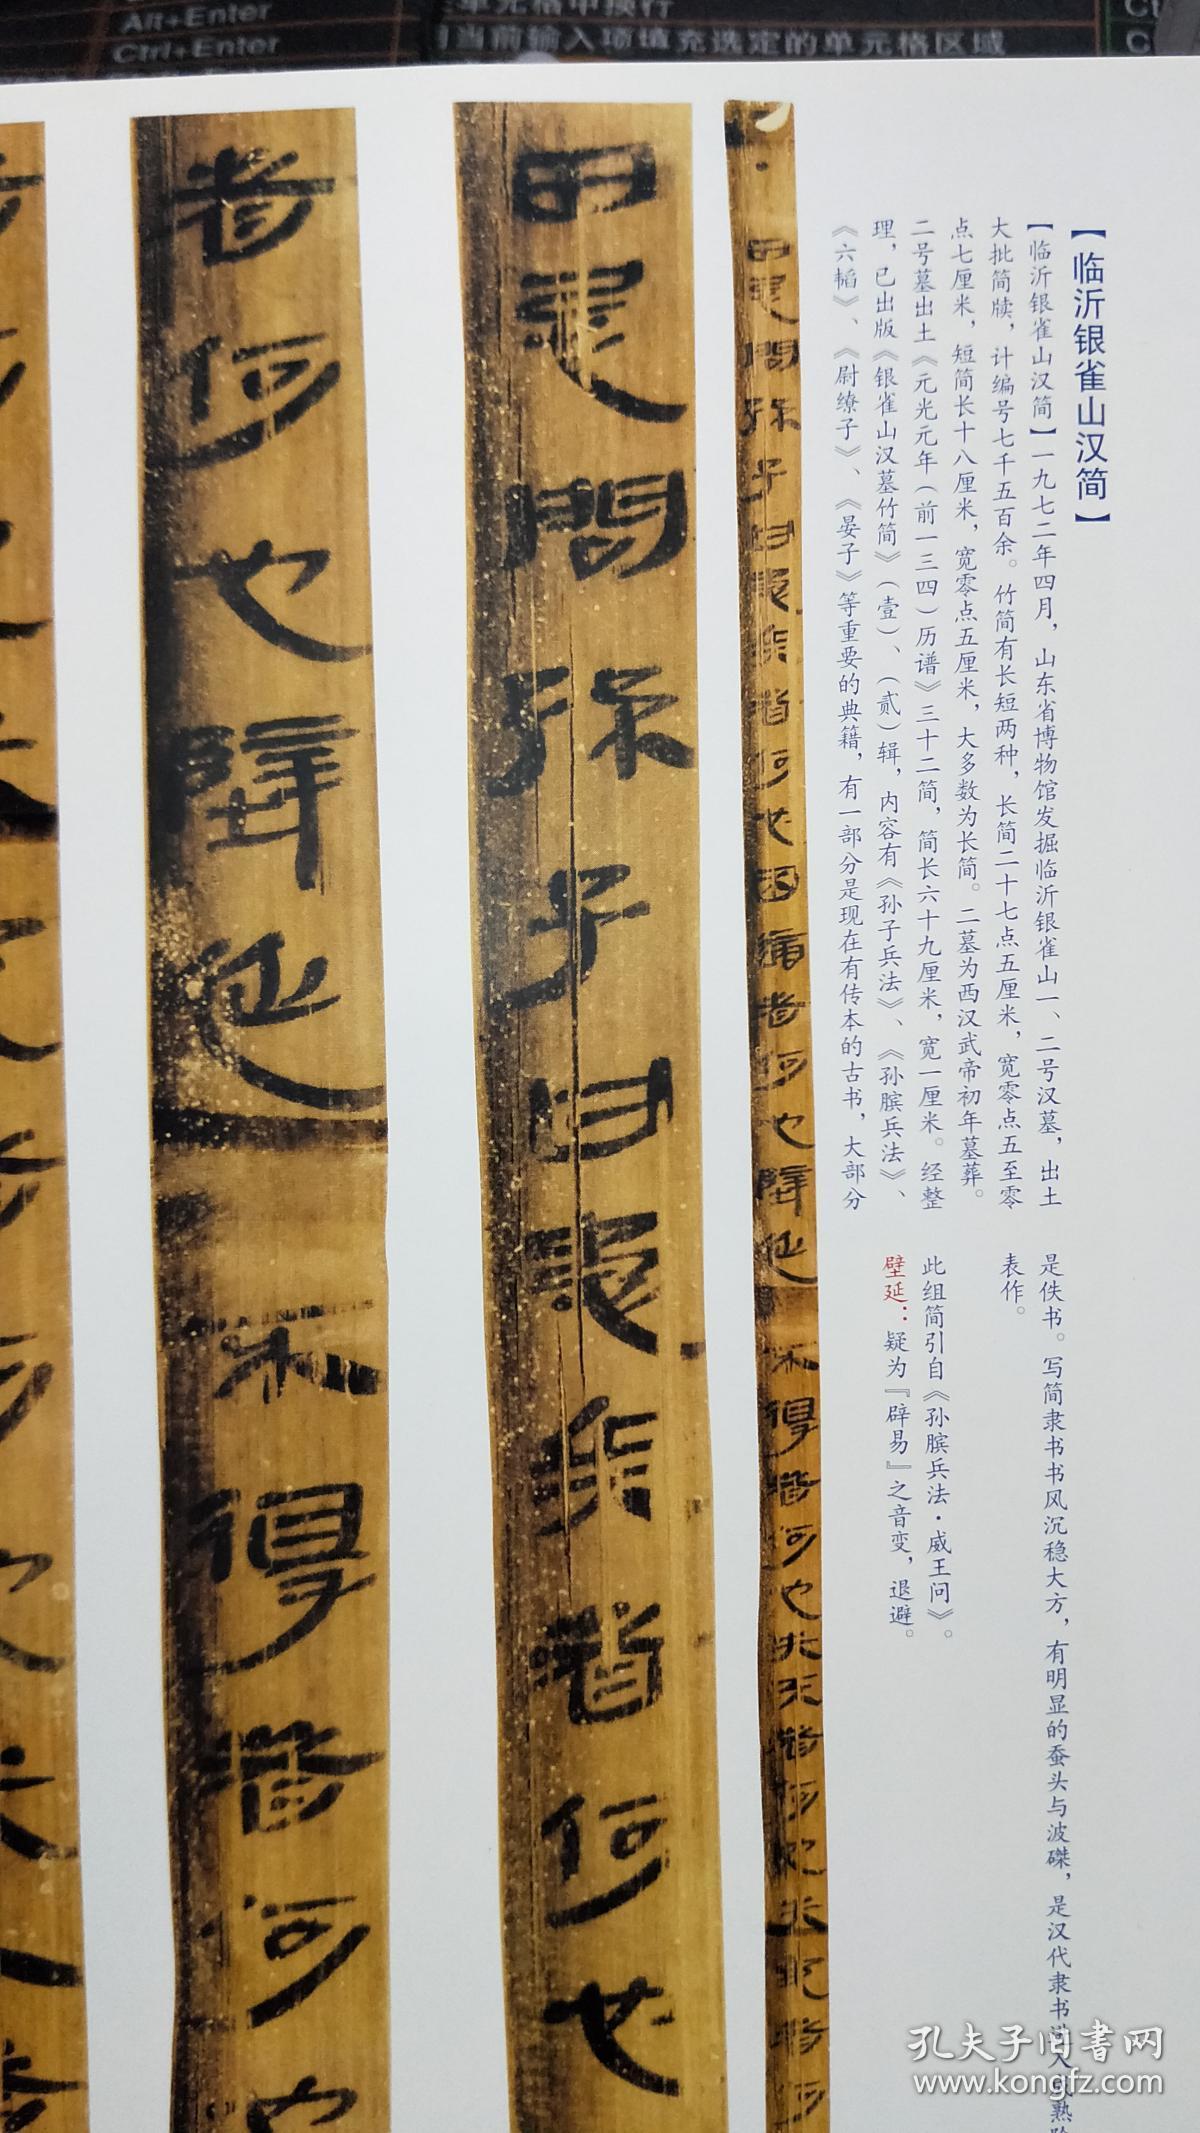 Alt+Enter
单元格中换行
Ctrl+Enter
当前输入项填充选定的单元格区域
【临沂银雀山汉简】
【临沂银雀山汉简】一九七二年四月，山东省博物馆发掘临沂银雀山一、二号汉墓，出土
大批简牍，计编号七千五百余。竹简有长短两种，长简二十七点五厘米，宽零点五至零
点七厘米，短简长十八厘米，宽零点五厘米，大多数为长简。二墓为西汉武帝初年墓葬。
二号墓出土《元光元年（前一三四）历谱》三十二简，简长六十九厘米，宽一厘米。经整
理，已出版《银雀山汉墓竹简》（壹）、（贰）辑，内容有《孙子兵法》、《孙膑兵法》、
《六韬》、《尉缭子》、《晏子》等重要的典籍，有一部分是现在有传本的古书，大部分
是佚书。写简隶书书风沉稳大方，有明显的蚕头与波磔，是汉代隶书进入成熟
表作。
此组简引自《孙膑兵法·威王问》。
壁延：疑为『辟易』之音变，退避。
田忌問孫子曰患兵者何也困適者何也壁延不得者何也失天者何也失地者何
田忌問孫子曰患兵者何也
者何也壁延不得者何也
孔夫子旧书网
www.kongfz.com